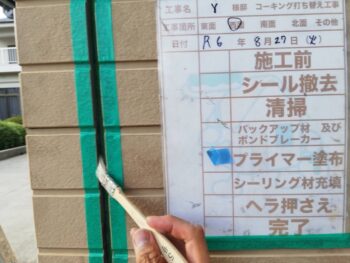 工事名 Y 様邸 コーキング打ち替え工事
工事箇所 東面 西面 南面 北面 その他
日付 R6 年 8月27日(火)
施工前
シール撤去
清掃
バックアップ材 及び
ボンドブレーカー
プライマー塗布
シーリング材充填
ヘラ押さえ
完了